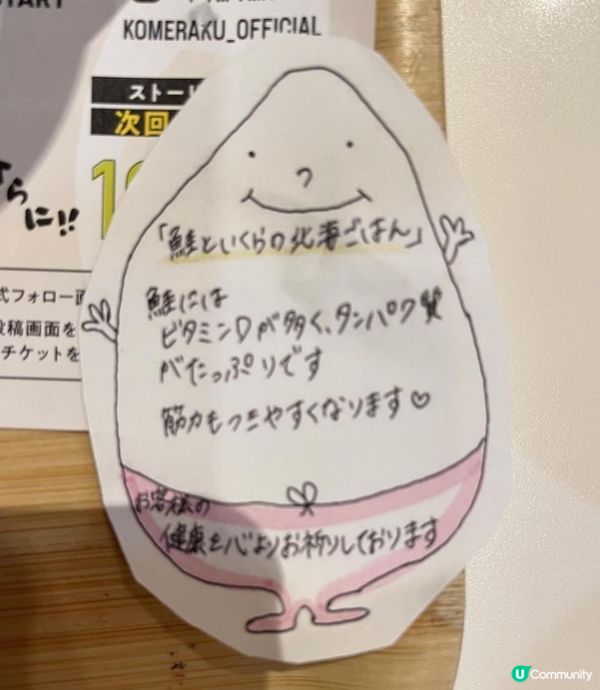 KOMERAKU_OFFICIAL
ストーリ
次回
らに!!
式フォロー画
投稿画面を
チケットを
「鮭といくらの北海ごはん」
鮭には
ビタミンDが多く、タンパク質
がたっぷりです
筋力もつきやすくなります♡
お客様の
健康を心よりお祈りしております
U Community